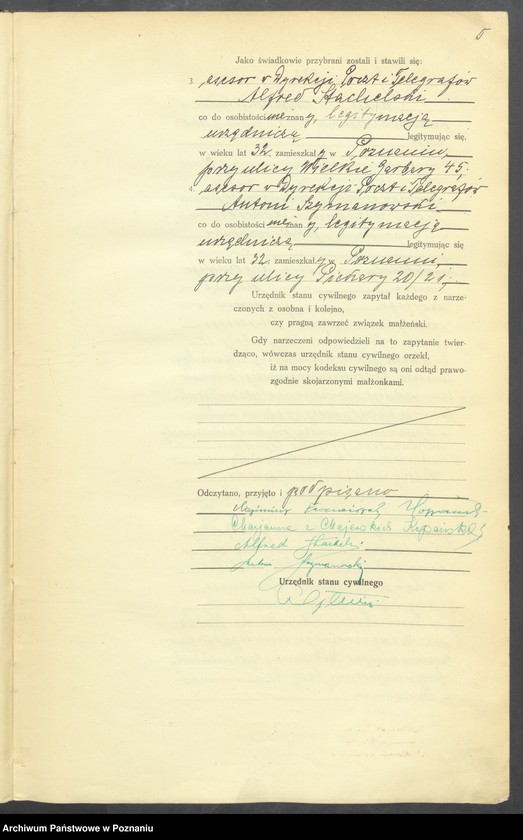 5
Jako świadkowie przybrani zostali i stawili się:
3. asesor w Dyrekcji Poczt i Telegrafów
Alfred Stachelski
co do osobistości nieznany, legitymacją
urzędniczą legitymując się.
w wieku lat 32. zamieszkały w Poznaniu,
przy ulicy Wielkie Garbary 45.
asesor w Dyrekcji Poczt i Telegrafów
Antoni Szymanowski
co do osobistości nieznany, legitymacją
urzędniczą legitymując się
w wieku lat 32. zamieszkały w Poznaniu,
przy ulicy Piekary 20/21.
Urzędnik stanu cywilnego zapytał każdego z narze-
czonych z osobna i kolejno,
czy pragną zawrzeć związek małżeński.
Gdy narzeczeni odpowiedzieli na to zapytanie twier-
dząco, wówczas urzędnik stanu cywilnego orzekł,
iż na mocy kodeksu cywilnego są oni odtąd prawo-
zgodnie skojarzonymi małżonkami.
Odczytano, przyjęto i podpisano
Marjanna z Majewskich
Alfred
Szymanowski
Urzędnik stanu cywilnego
Archiwum Państwowe w Poznaniu